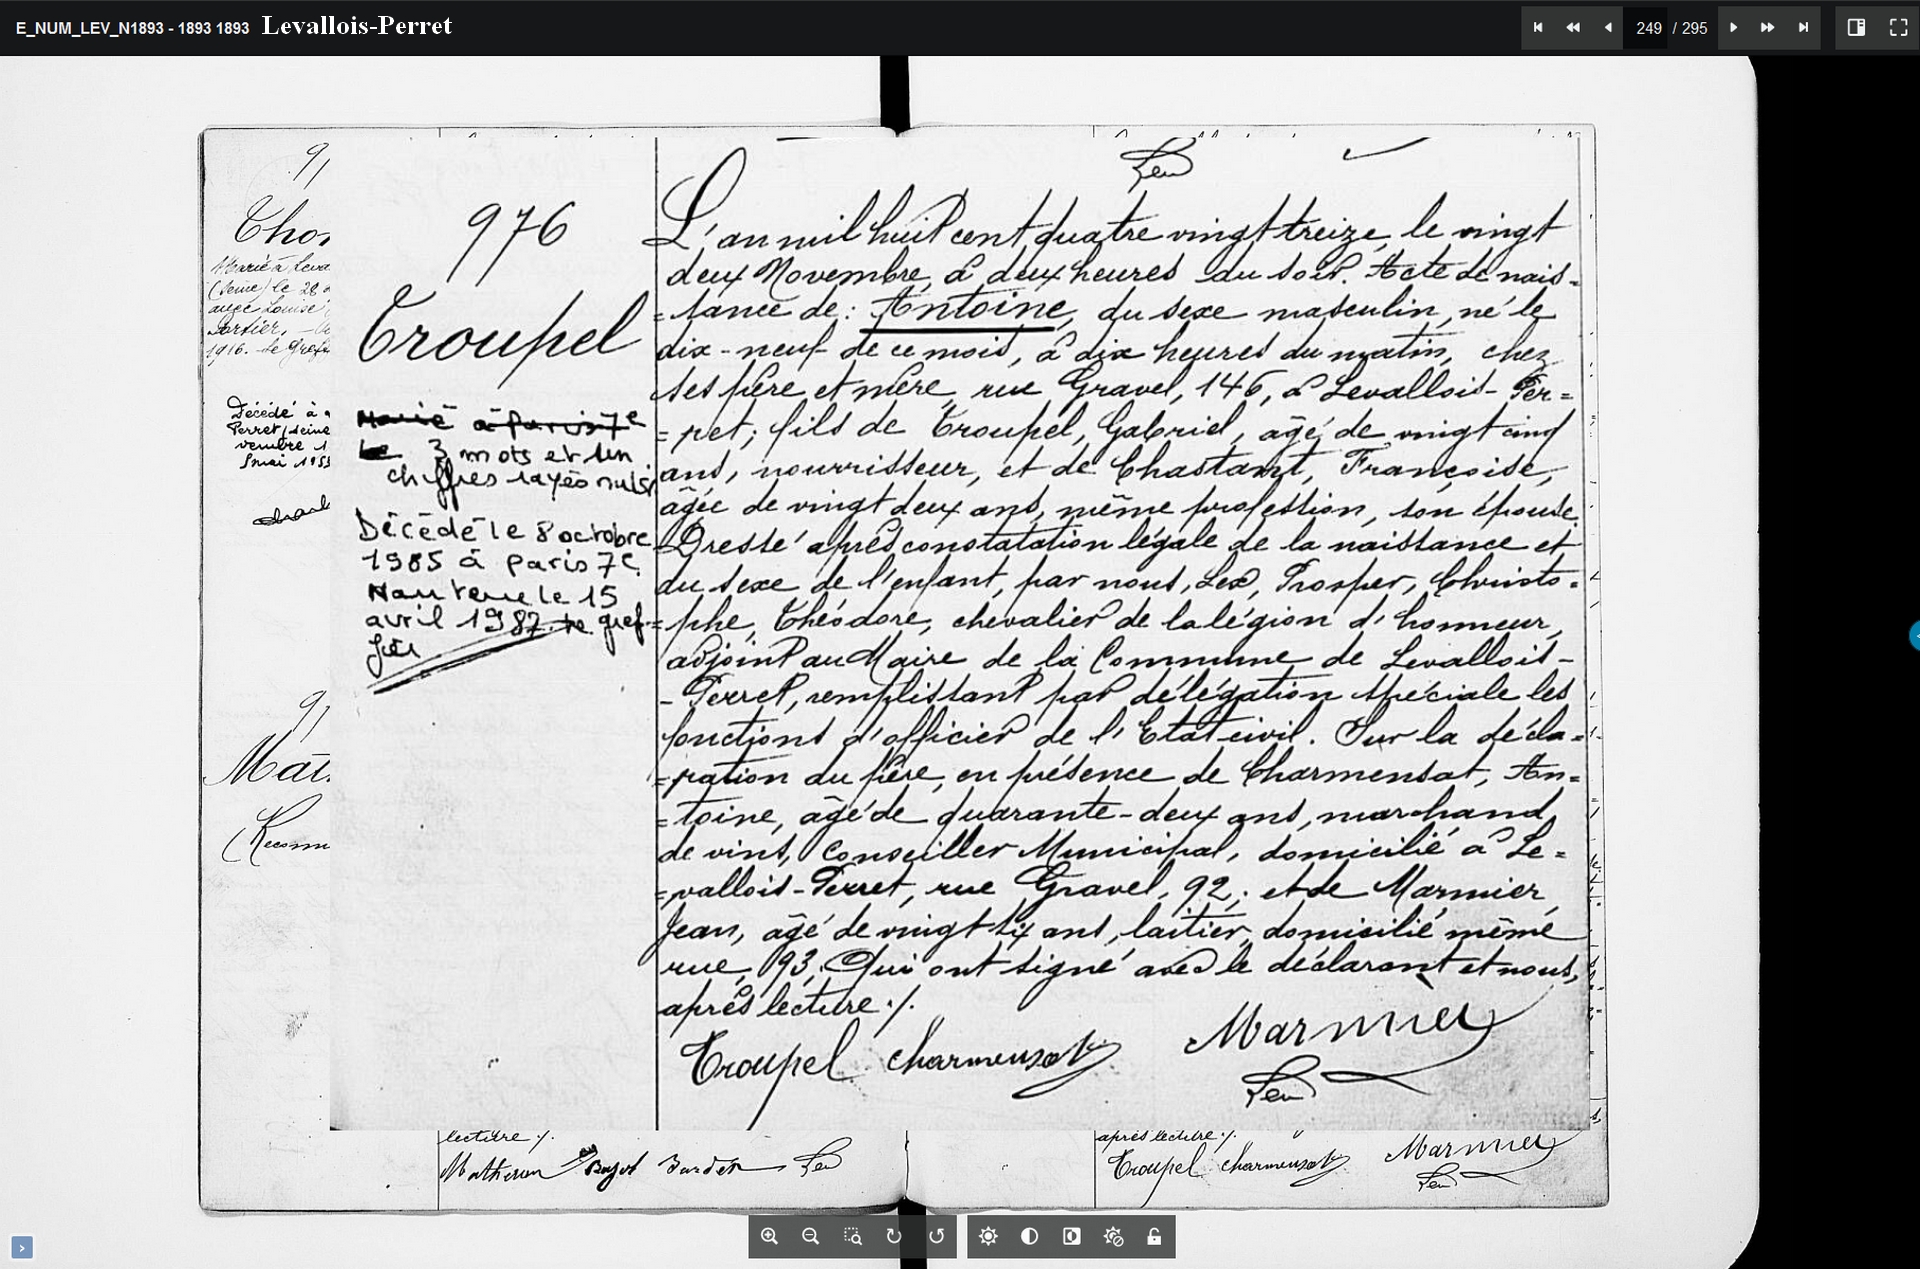 E_NUM_LEV_N1893 - 1893 1893 Levallois-Perret
249 / 295
976
Troupel
Marié à Paris 7e
Le 3 mots et un
chiffres rayés nuls
Décédé le 8 octobre
1985 à paris 7e.
Nanterre le 15
avril 1987. Le gref
fier
Leu
L'an mil huit cent quatre vingt treize, le vingt
deux Novembre, à deux heures du soir. Acte de nais-
=sance de : Antoine, du sexe masculin, né le
dix-neuf de ce mois, à dix heures du matin, chez
ses père et mère, rue Gravel, 146, à Levallois-Per=
=ret; fils de Troupel, Gabriel, âgé de vingt cinq
ans, nourrisseur, et de Chastant, Françoise,
âgée de vingt deux ans, même profession, son épouse.
Dressé après constatation légale de la naissance et
du sexe de l'enfant, par nous, Leu, Prosper, Christo-
=phe, Théodore, chevalier de la légion d'honneur,
adjoint au Maire de la Commune de Levallois-
-Perret, remplissant par délégation spéciale les
fonctions d'officier de l'Etat civil. Sur la décla=
=ration du père, en présence de Charmensat, An=
=toine, âgé de quarante-deux ans, marchand
de vins, Conseiller Municipal, domicilié à Le=
=vallois-Perret, rue Gravel, 92; et de Marmier,
Jean, âgé de vingt six ans, laitier, domicilié même
rue, 93. Qui ont signé avec le déclarant et nous,
après lecture ./.
Troupel Charmensat Marmier
Leu
91
Chor
Marié à Leva
(Seine) le 28
avec Louise
1916. Le Greff
Décédé à
Perret, seine
vembre 1
5 mai 195
91
Mat
(Reconn
lecture ./.
Matheron Bayol Leu
après lecture ./.
Troupel Charmensat Marmier
Leu